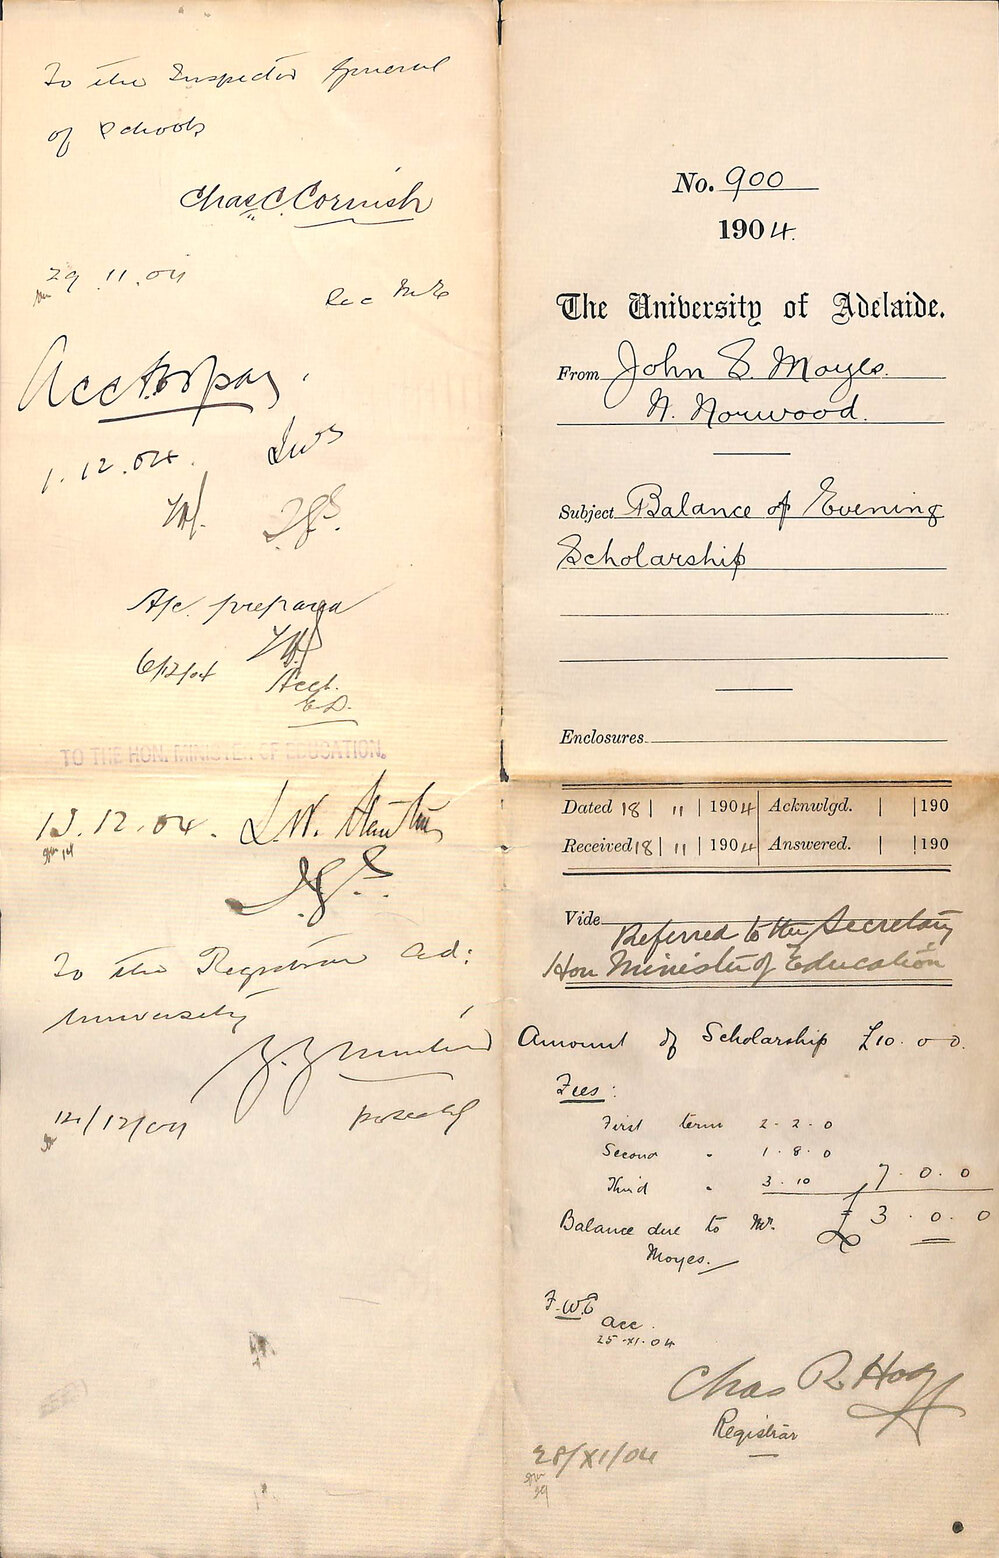 To the Inspector General
of Schools
Chas C. Cornish
29.11.04
Acct for pay.
1.12.04.
A/c. prepared
6/12/04
Acct.
E.D.
TO THE HON. MINISTER OF EDUCATION.
13.12.04.
To the Registrar Ad:
University
14/12/04
No. 900
1904.
The University of Adelaide.
From John S. Moyes.
N. Norwood.
Subject Balance of Evening
Scholarship
Enclosures
Dated 18 | 11 | 1904 | Acknwlgd. | | 190
Received 18 | 11 | 1904 | Answered. | | 190
Vide
Referred to the Secretary
Hon Minister of Education
Amount of Scholarship £10.0.0.
Fees:
First term 2.2.0
Second " 1.8.0
Third " 3.10 7.0.0
Balance due to Mr. £3.0.0
Moyes.
F.W.E
acc.
25.XI.04
Chas R Hodge
Registrar
28/XI/04